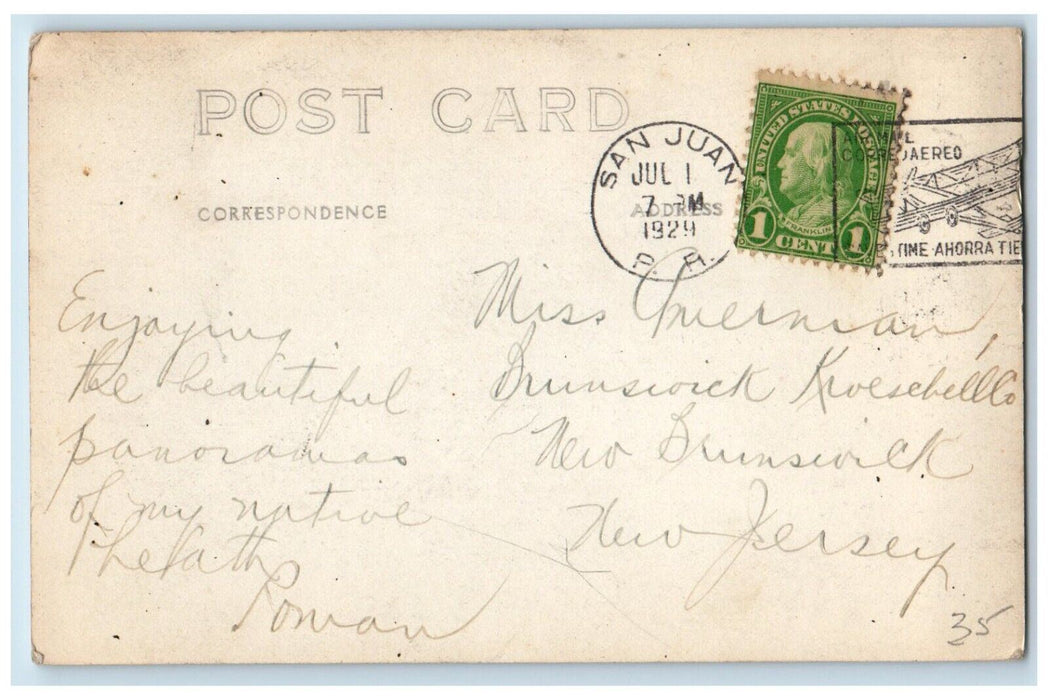 POST CARD
CORRESPONDENCE
ADDRESS
SAN JUAN
JUL 1
7 PM
1929
P. R.
UNITED STATES POSTAGE
FRANKLIN
1 CENT 1
AEREO
TIME-AHORRA TIE
Enjoying
the beautiful
panoramas
of my native
Roman
Miss
Brunswick Kroeschell Co
New Brunswick
New Jersey
35